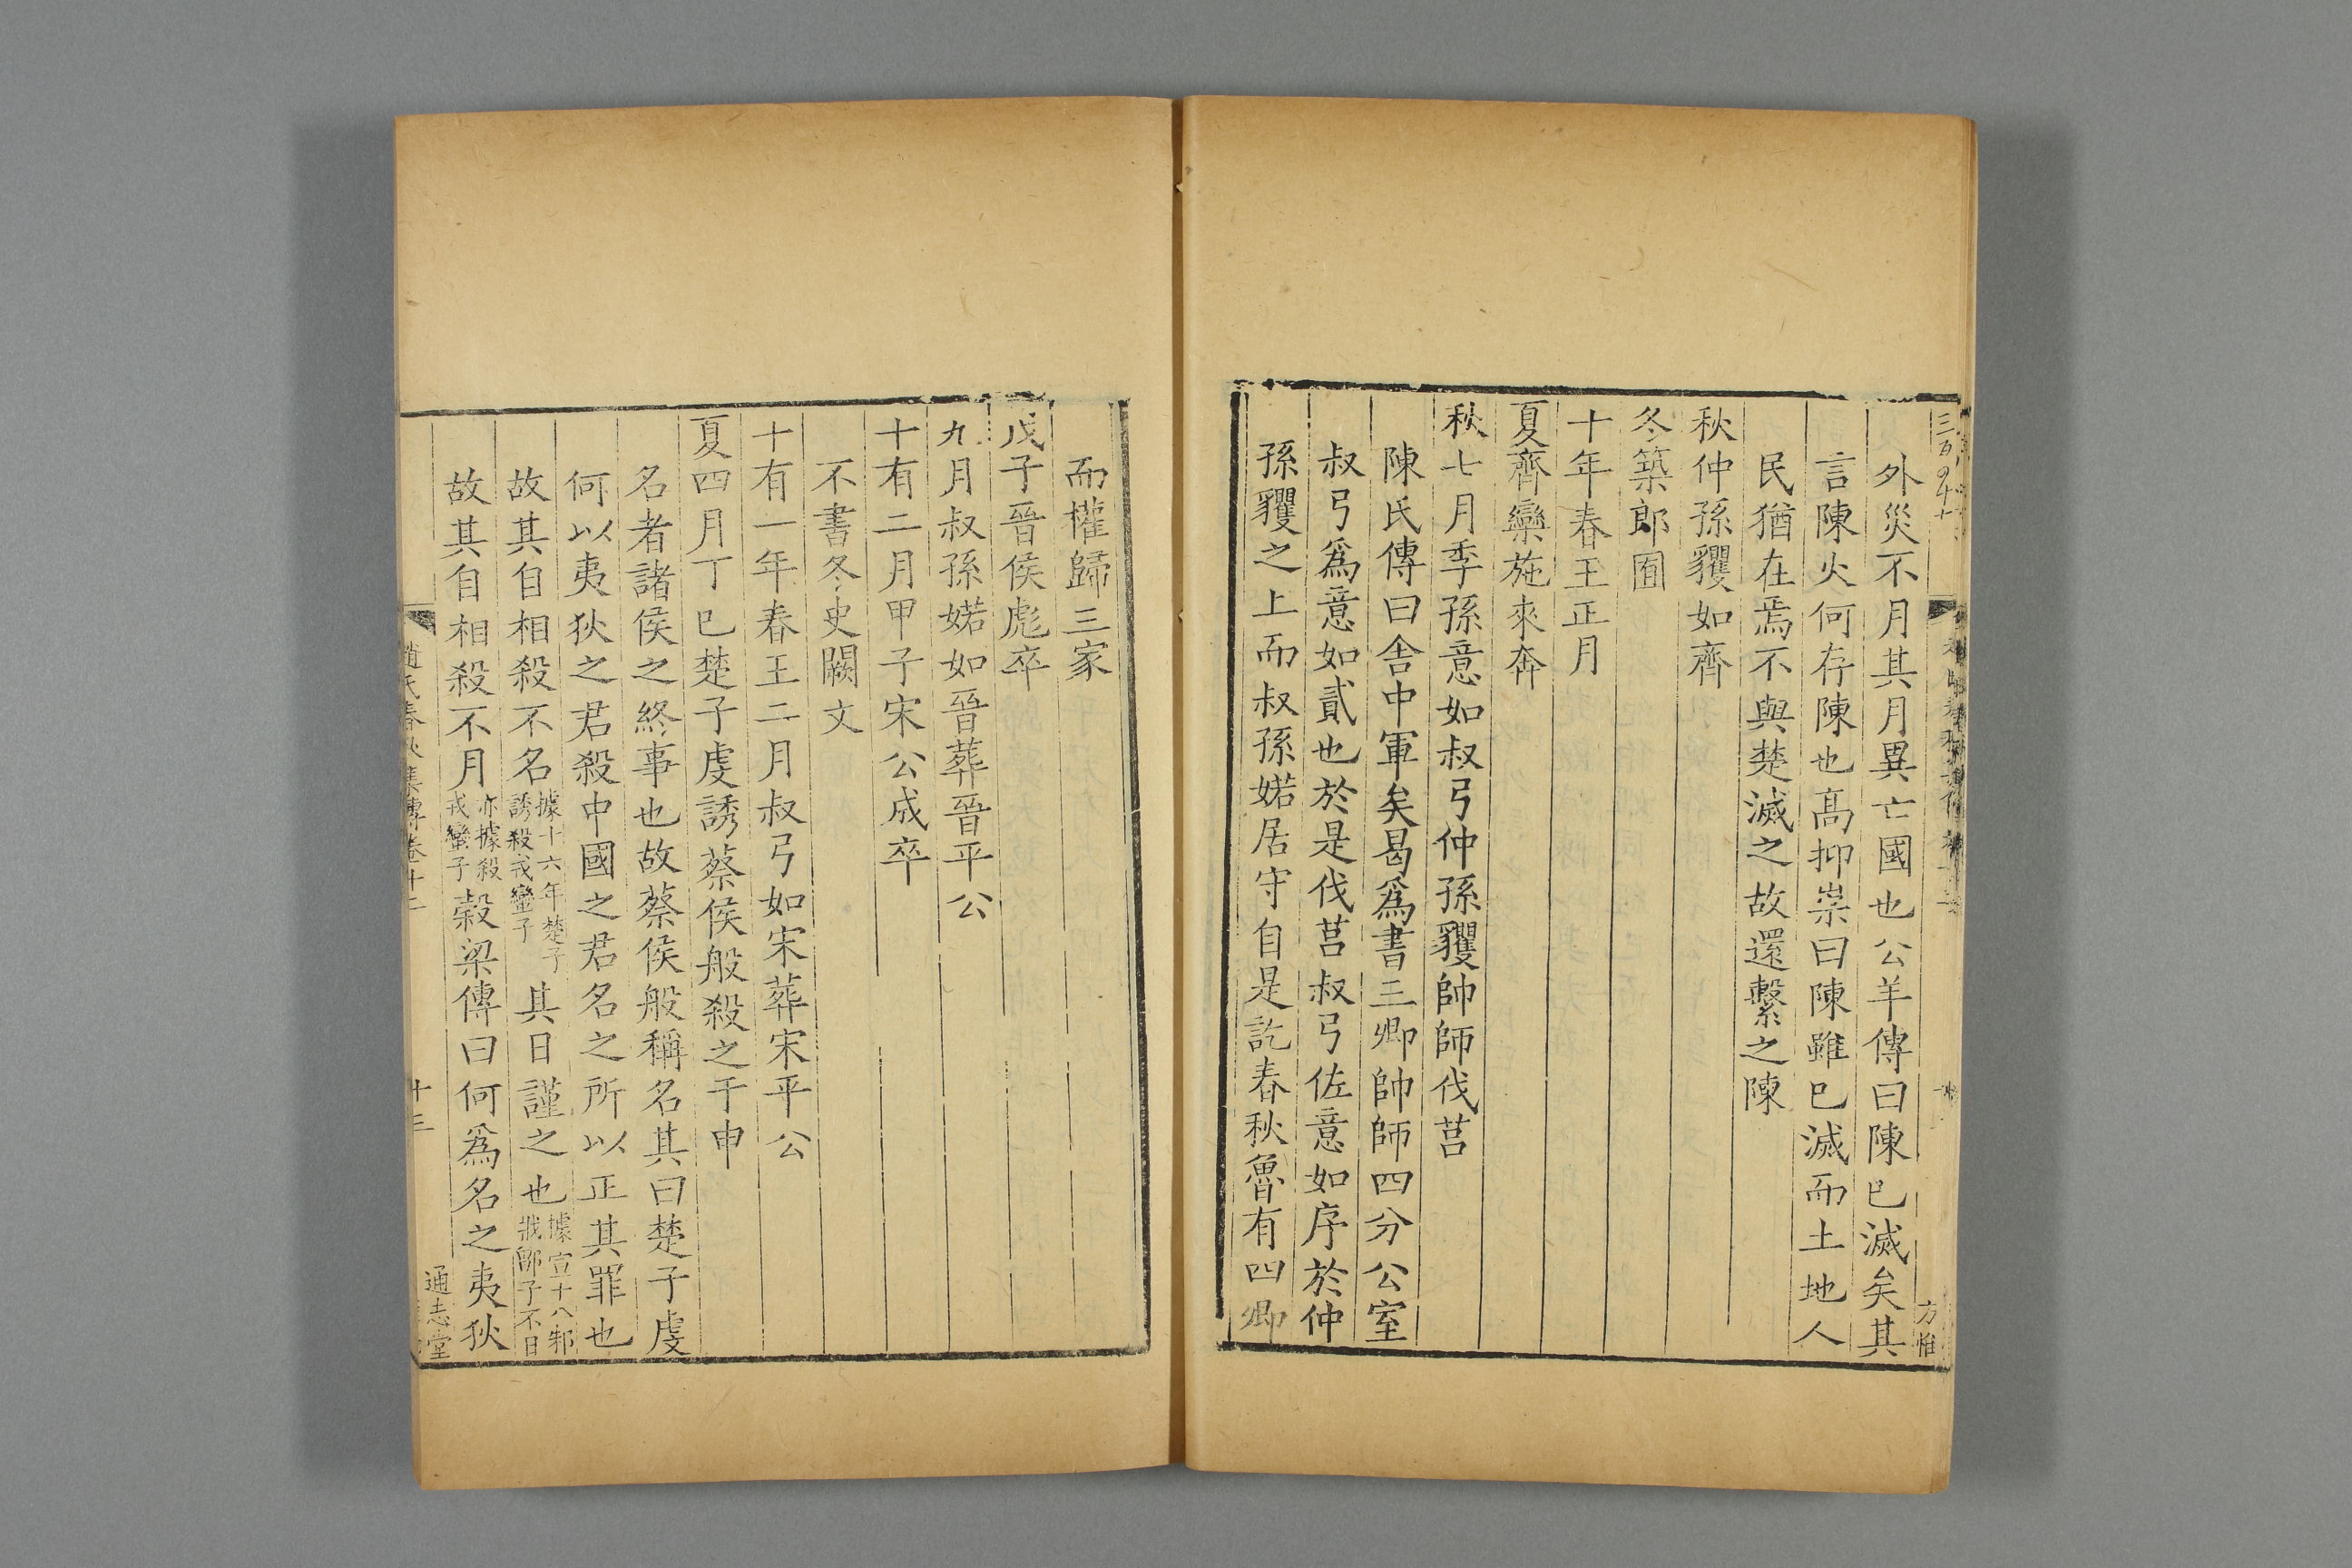 外災不月其月異亡國也公羊傳曰陳已滅矣其
言陳火何存陳也髙抑崇曰陳雖已滅而土地人
民猶在焉不與楚滅之故還繫之陳
秋仲孫貜如齊
冬築郎囿
十年春王正月
夏齊欒施來奔
秋七月季孫意如叔弓仲孫貜帥師伐莒
陳氏傳曰舎中軍矣曷爲書三卿帥師四分公室
叔弓爲意如貳也於是伐莒叔弓佐意如序於仲
孫貜之上而叔孫婼居守自是訖春秋魯有四卿
方惟
而權歸三家
戊子晉侯彪卒
九月叔孫婼如晉葬晉平公
十有二月甲子宋公成卒
不書冬史闕文
十有一年春王二月叔弓如宋葬宋平公
夏四月丁巳楚子虔誘蔡侯般殺之于申
名者諸侯之終事也故蔡侯般稱名其曰楚子虔
何以夷狄之君殺中國之君名之所以正其罪也
故其自相殺不名據十六年楚子誘殺戎蠻子其日謹之也據宣十八邾戕鄫子不日
故其自相殺不月亦據殺戎蠻子榖梁傳曰何爲名之夷狄
趙氏春秋集傳卷十二
十三
通志堂